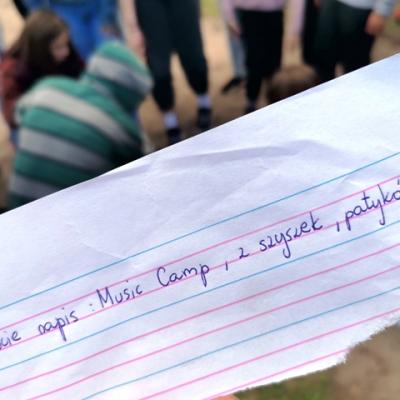 napis : Music Camp, z szyszek, patykó